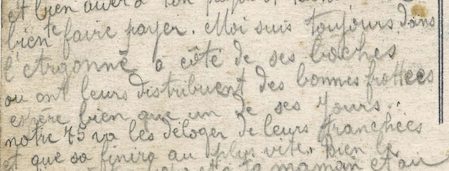 et bien
bien te faire payer. Moi suis toujours dans
l'Argonne a côté de ses boches
ou ont leurs distribuent des bonnes frottées
espere bien que un de ses jours.
notre 75 va les déloger de leurs tranchées
et que sa finira au plus vite. bien le
maman et au